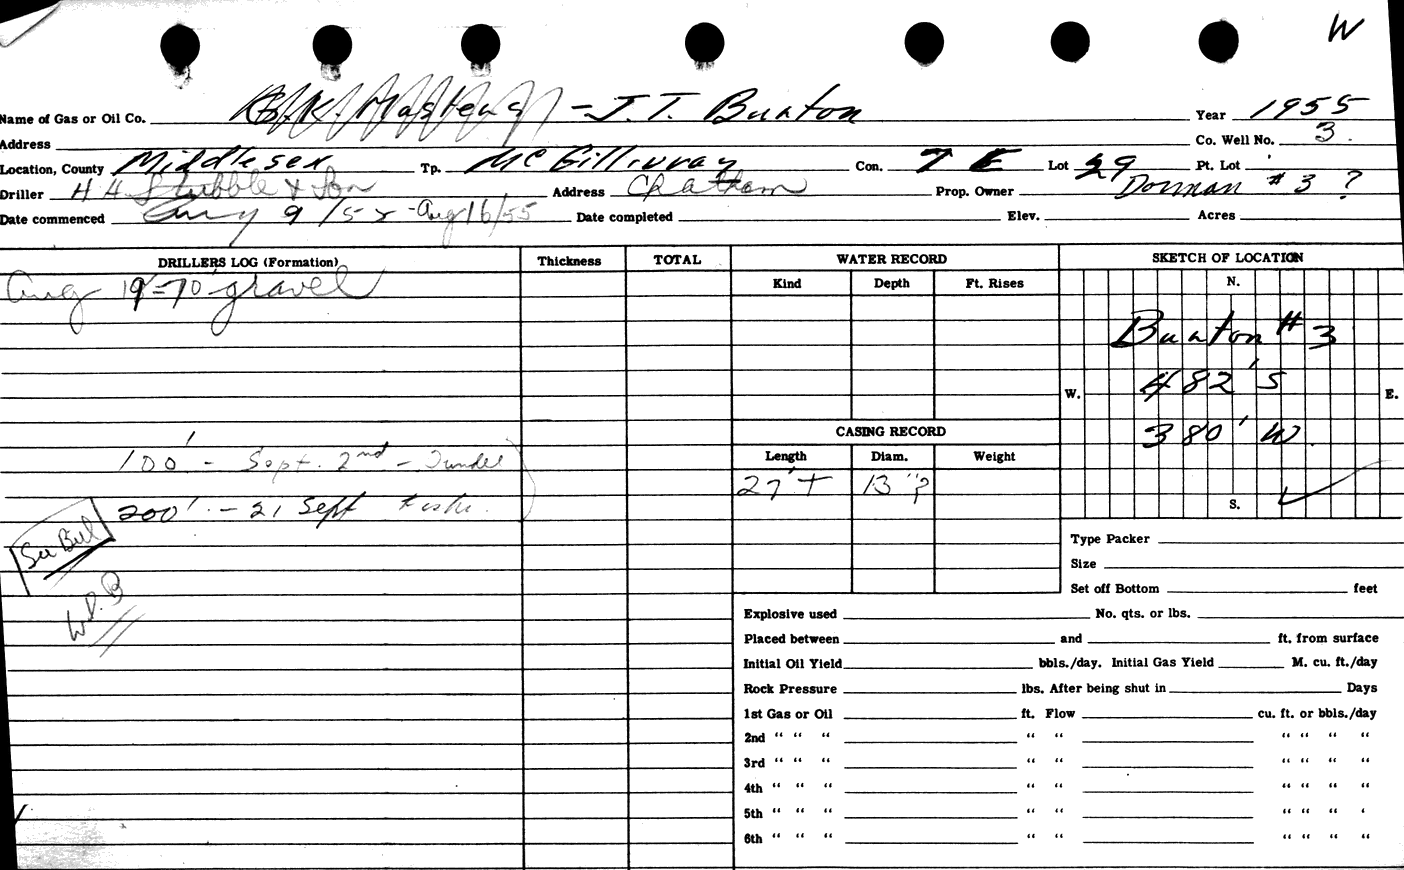 W
Name of Gas or Oil Co. B.K. Masters - J.T. Buxton Year 1955
Address Co. Well No. 3.
Location, County Middlesex Tp. McGillivray Con. 7 E Lot 29 Pt. Lot
Driller H H Stubble & Son Address Chatham Prop. Owner Dorman #3 ?
Date commenced Aug 9 /55 - Aug 16/55 Date completed Elev. Acres
DRILLERS LOG (Formation) Thickness TOTAL WATER RECORD SKETCH OF LOCATION
Kind Depth Ft. Rises N.
Aug 19 - 70' gravel
Buxton #3
W. 482' S E.
380' W.
CASING RECORD
Length Diam. Weight
100' - Sept. 2nd - Dundee
27' + 13"?
200' - 21 Sept
S.
See Bul
W.P.B
Type Packer
Size
Set off Bottom feet
Explosive used No. qts. or lbs.
Placed between and ft. from surface
Initial Oil Yield bbls./day. Initial Gas Yield M. cu. ft./day
Rock Pressure lbs. After being shut in Days
1st Gas or Oil ft. Flow cu. ft. or bbls./day
2nd " " " " " " " " "
3rd " " " " " " " " "
4th " " " " " " " " "
5th " " " " " " " " '
6th " " " " " " " " "